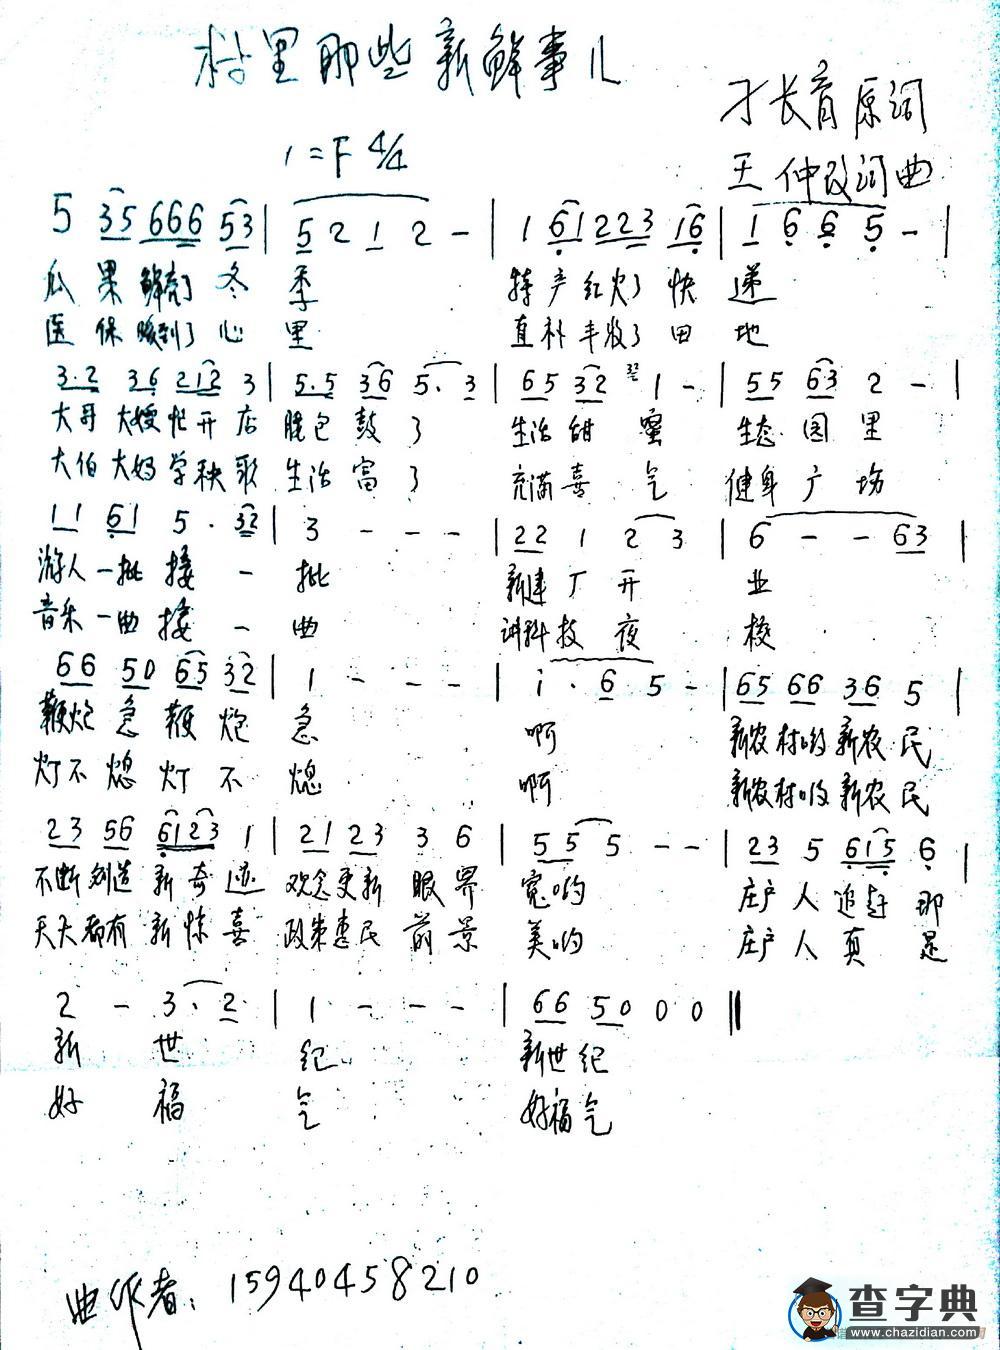 村里那些新鲜事儿
才长育原词
1=F 4/4
王仲改词曲
5 35 666 53 | 5 2 1 2 - | 1 61 223 16 | 1 6 6 5 - |
瓜果鲜亮了冬季 特产红火了快递
医保暖到了心里 直补丰收了田地
3.2 36 212 3 | 5.5 36 5.3 | 65 32 32 1 - | 55 63 2 - |
大哥大嫂忙开店 腰包鼓了 生活甜蜜 生态园里
大伯大妈学秧歌 生活富了 充满喜气 健身广场
11 61 5 . 32 | 3 - - - | 22 1 2 3 | 6 - - 63 |
游人一批接一批 新建厂开业
音乐一曲接一曲 讲科技夜校
66 50 65 32 | 1 - - - | i . 6 5 - | 65 66 36 5 |
鞭炮急鞭炮急 啊 新农村哟新农民
灯不熄灯不熄 啊 新农村哟新农民
23 56 6123 1 | 21 23 3 6 | 5 5 5 - - | 23 5 615 6 |
不断创造新奇迹 观念更新眼界宽哟 庄户人追赶那
天天都有新惊喜 政策惠民前景美哟 庄户人真是
2 - 3 . 2 | 1 - - - | 66 50 0 0 ‖
新世纪 新世纪
好福气 好福气
曲作者：15940458210
查字典
www.chazidian.com